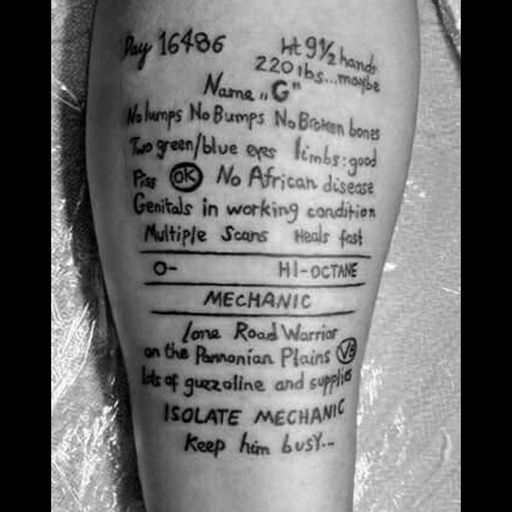 Day 16486
Ht 9½ hands
220 lbs...maybe
Name „G"
No lumps No Bumps No Broken bones
Two green/blue eyes limbs: good
Piss OK No African disease
Genitals in working condition
Multiple Scans Heals fast
O- HI-OCTANE
MECHANIC
lone Road Warrior
on the Pannonian Plains V8
lots of guzzoline and supplies
ISOLATE MECHANIC
Keep him busy...